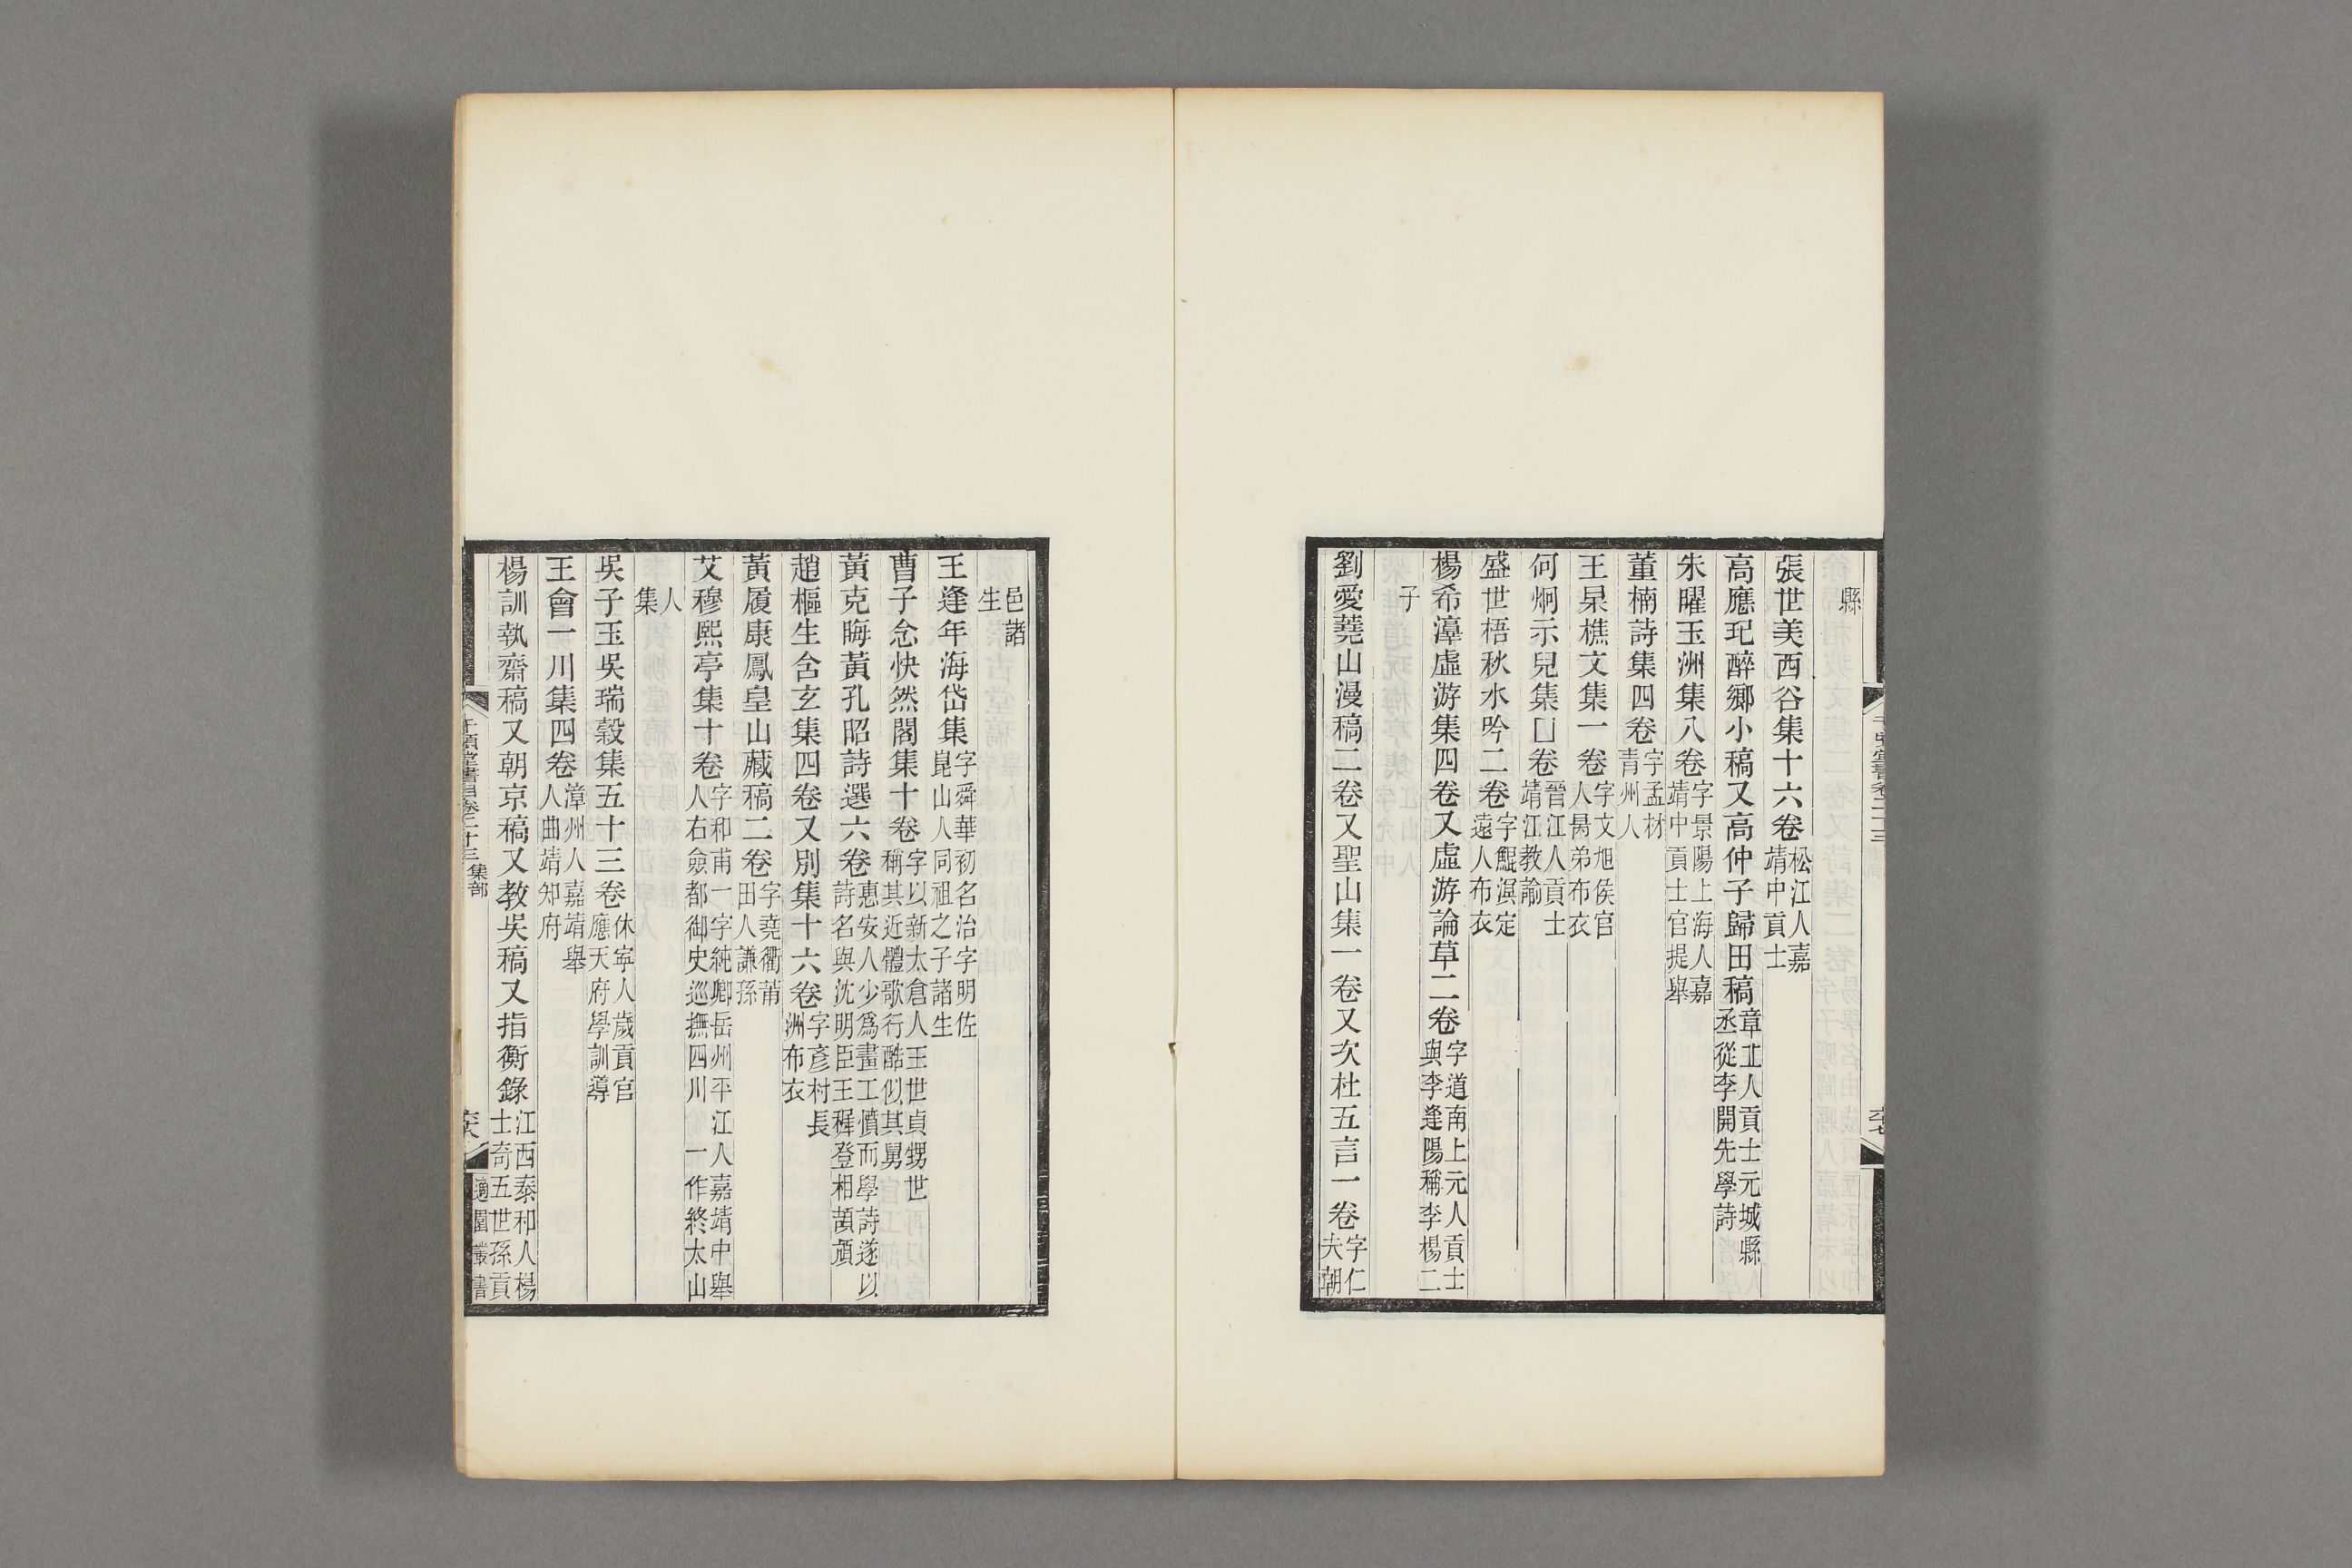 縣
張世美西谷集十六卷松江人嘉靖中貢士
高應玘醉鄉小稿又高仲子歸田稿章丘人貢士元城縣丞從李開先學詩
朱曜玉洲集八卷字景陽上海人嘉靖中貢士官提舉
董楠詩集四卷字孟材青州人
王杲樵文集一卷字文旭侯官人昺弟布衣
何炯示兒集囗卷晉江人貢士靖江教諭
盛世梧秋水吟二卷字鯤溟定遠人布衣
楊希濞虛游集四卷又虛游論草二卷字道南上元人貢士與李逢陽稱李楊二
子
劉愛蕘山漫稿二卷又聖山集一卷又次杜五言一卷字仁夫朝
邑諸生
王逢年海岱集字舜華初名治字明佐崑山人同祖之子諸生
曹子念快然閣集十卷字以新太倉人王世貞甥世稱其近體歌行酷似其舅
黃克晦黃孔昭詩選六卷惠安人少爲畫工憤而學詩遂以詩名與沈明臣王穉登相頡頏
趙樞生含玄集四卷又別集十六卷字彥材長洲布衣
黃履康鳳皇山藏稿二卷字堯衢莆田人謙孫
艾穆熙亭集十卷字和甫一字純卿岳州平江人嘉靖中舉人右僉都御史巡撫四川一作終太山
人集
吳子玉吳瑞穀集五十三卷休寧人歲貢官應天府學訓導
王會一川集四卷漳州人嘉靖舉人曲靖知府
楊訓執齋稿又朝京稿又教吳稿又指衡錄江西泰和人楊士奇五世孫貢
千頃堂書目卷二十三 集部
六十八
適園叢書